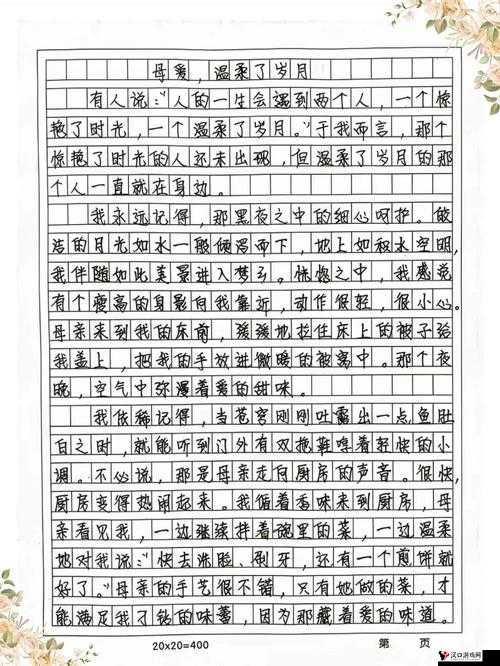 母爱,温柔了岁月
有人说:“人的一生会遇到两个人,一个惊
艳了时光,一个温柔了岁月。”于我而言,那个
惊艳了时光的人还未出现,但温柔了岁月的那
个人一直就在身边。
我永远记得,那黑夜之中的细心呵护。皎
洁的月光如水一般倾泻而下,地上如积水空明,
我伴随如此美景进入梦乡。恍惚之中,我感觉
有个瘦高的身影向我靠近,动作很轻,很小心。
母亲来到我的床前,缓缓地拉住床上的被子给
我盖上,把我的手放进微暖的被窝中。那个夜
晚,空气中弥漫着爱的甜味。
我依稀记得,当苍穹刚刚吐露出一点鱼肚
白之时,就能听到门外有双拖鞋哼着轻快的小
调。不必说,那是母亲走向厨房的声音。很快,
厨房变得热闹起来。我循着香味来到厨房,母
亲看见我,一边继续拌着碗里的菜,一边温柔
地对我说:“快去洗脸、刷牙,还有一个煎饼就
好了。”母亲的手艺很不错,只有她做的菜,才
能满足我刁钻的味蕾,因为那藏着爱的味道。
20×20=400 第 页
汉口游戏网